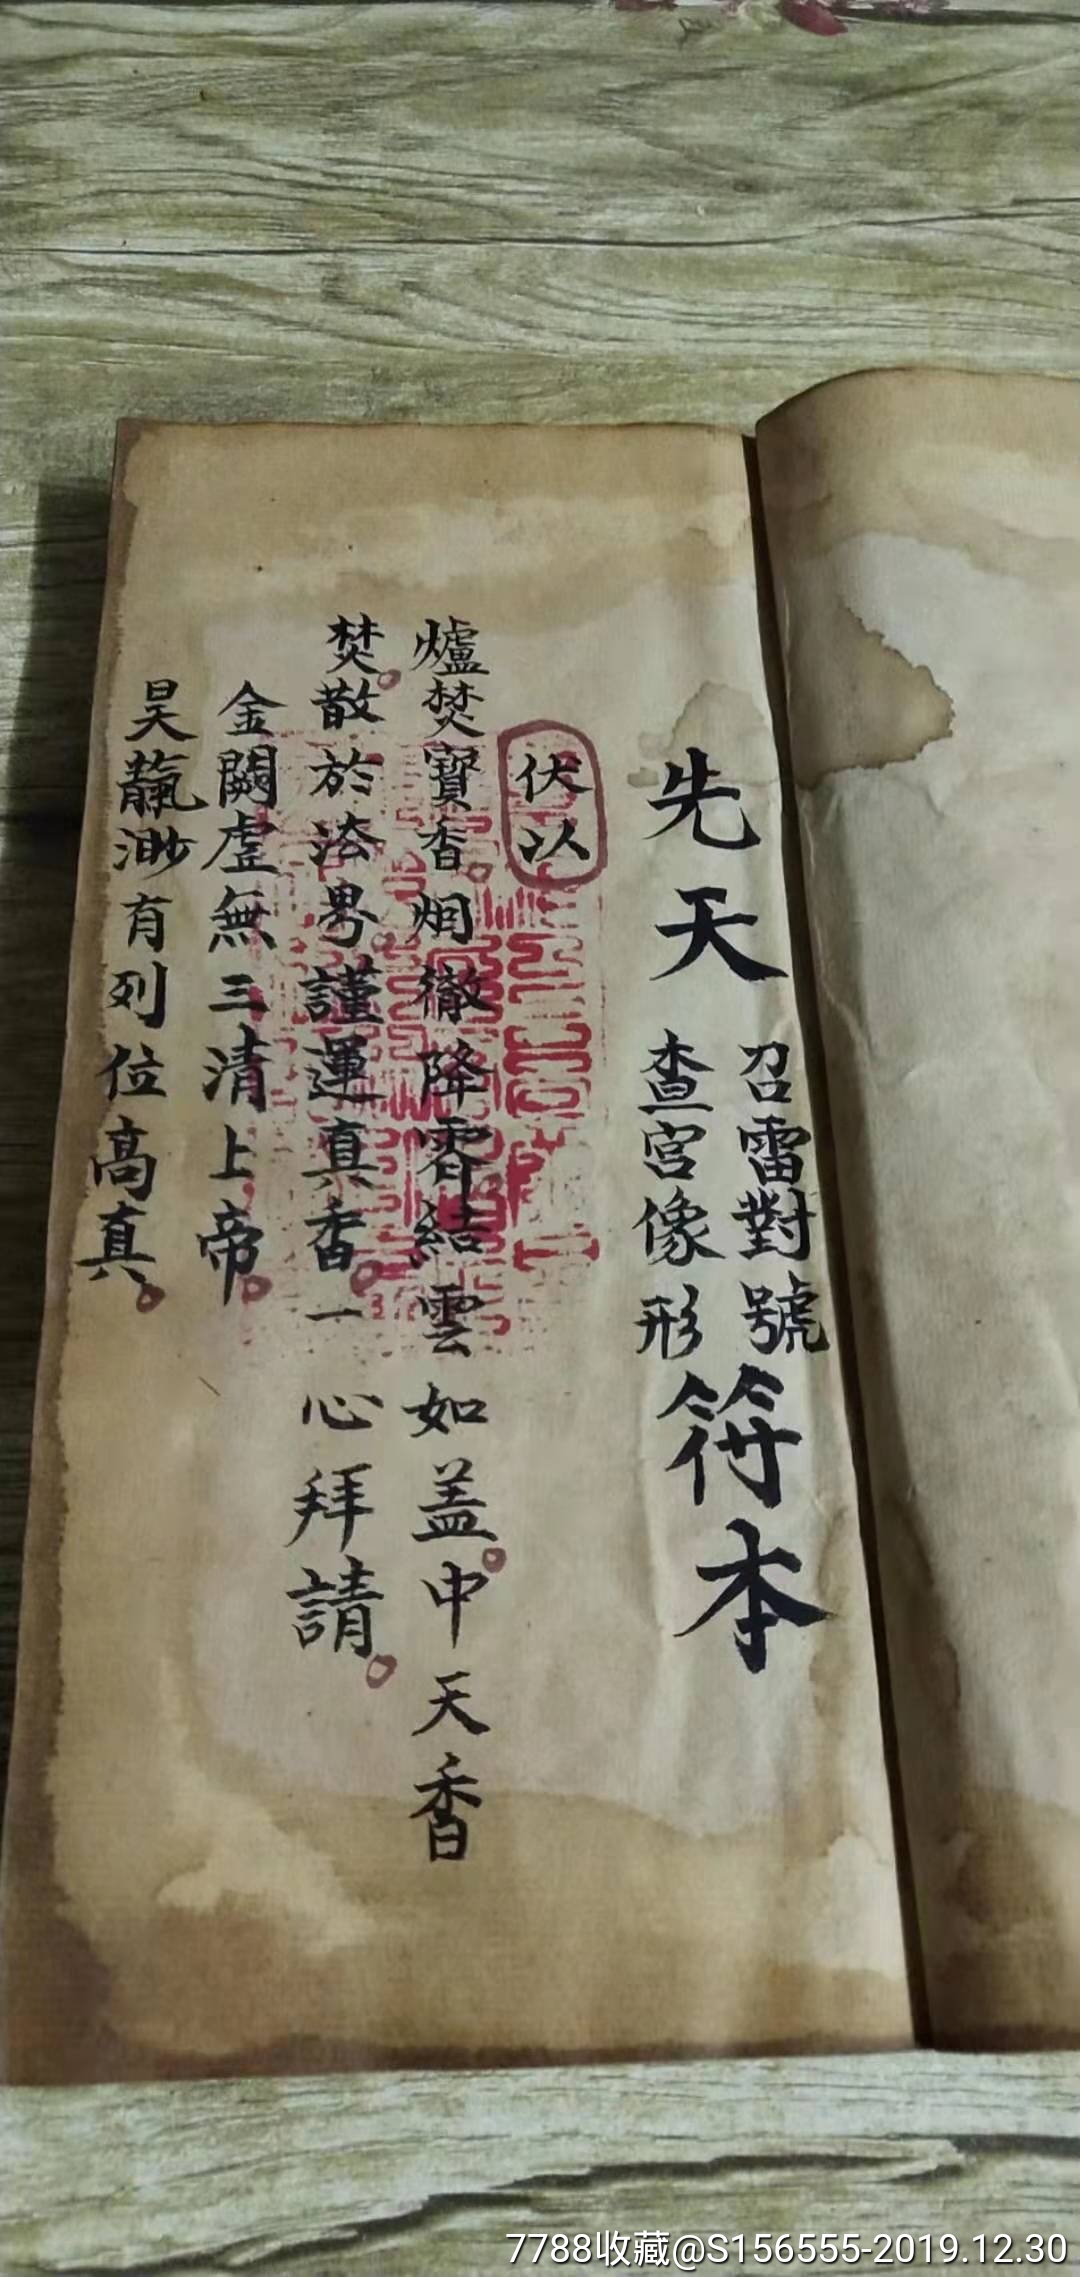 先天
召雷對號
查宮像形
符本
伏以
爐焚寶香烟徹降霄結雲如盖中天香
焚散於法界謹運真香一心拜請
金闕虛無三清上帝
昊 渺有列位高真
7788收藏@S156555-2019.12.30